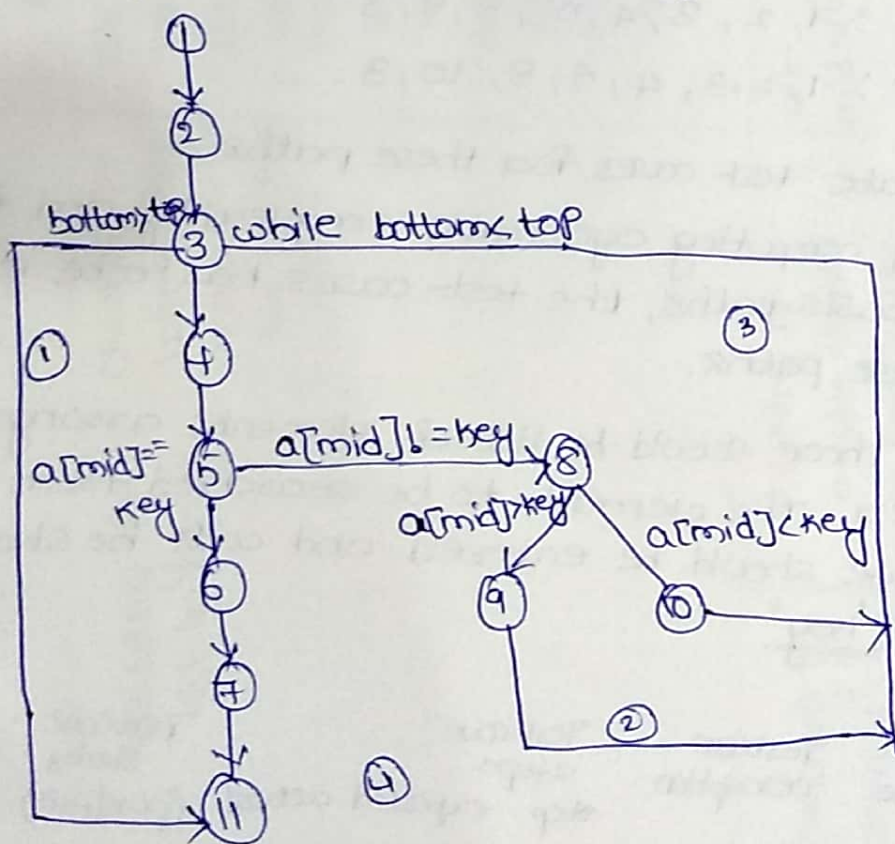 1
2
bottom>top 3 while bottom<top
1
3
4
a[mid]== key
5
a[mid]!=key
8
a[mid]>key
a[mid]<key
6
9
10
7
2
4
11